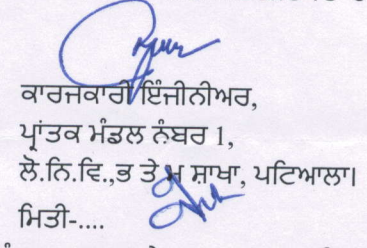 ਕਾਰਜਕਾਰੀ ਇੰਜੀਨੀਅਰ,
ਪ੍ਰਾਂਤਕ ਮੰਡਲ ਨੰਬਰ 1,
ਲੋ.ਨਿ.ਵਿ.,ਭ ਤੇ ਮ ਸ਼ਾਖਾ, ਪਟਿਆਲਾ।
ਮਿਤੀ-....